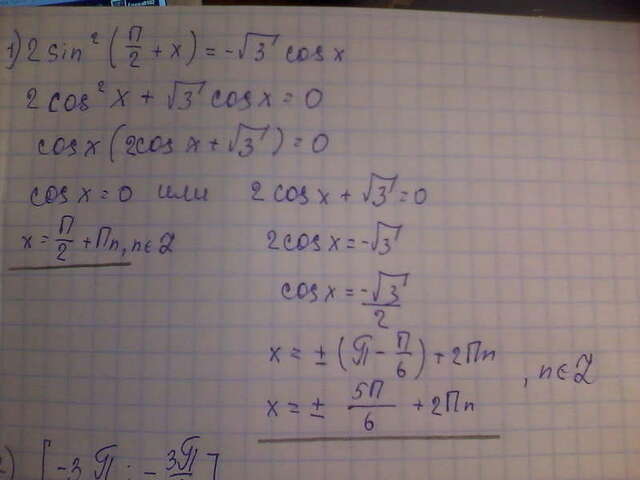 1) 2 sin² (П/2 + x) = -√3 cos x
2 cos² x + √3 cos x = 0
cos x (2 cos x + √3) = 0
cos x = 0 или 2 cos x + √3 = 0
x = П/2 + Пn, n∈Z 2 cos x = -√3
cos x = -√3/2
x = ± (π - П/6) + 2Пn
, n∈Z
x = ± 5П/6 + 2Пn
2) [-3π; -3π